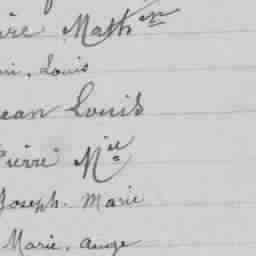 ire Math^in
ni, Louis
ean Louis
Pierre M^ie
Joseph. Marie
Marie, ange